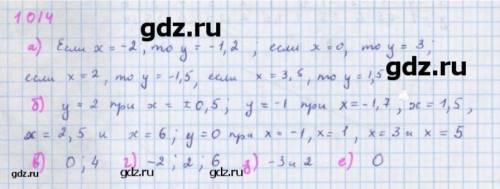 gdz.ru
1014
gdz.ru
gdz.ru
а) Если x = -2, то y = -1,2 ; если x = 0, то y = 3 ;
если x = 2, то y = -1,5, если x = 3,5, то y = 1,5
gdz.ru
б) y = 2 при x = ±0,5 ; y = -1 при x = -1,7 , x = 1,5 ,
x = 2,5 и x = 6 ; y = 0 при x = -1, x = 1 , x = 3 и x = 5
в) 0 ; 4 г) -2 ; 2 ; 6 д) -3 и 2 е) 0
gdz.ru
gdz.ru
gdz.ru